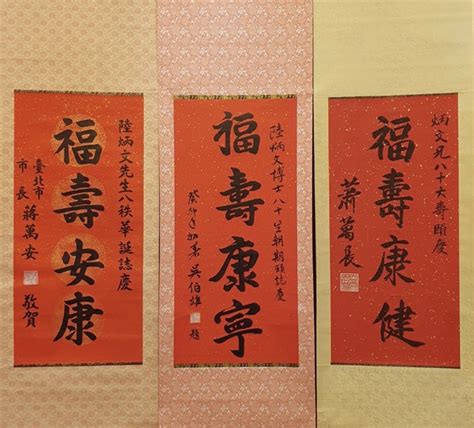 陸炳文先生八秩華誕誌慶
福壽安康
臺北市
市長 蔣萬安 敬賀
陸炳文博士八十生朝期頤誌慶
福壽康寧
癸卯年 吳伯雄 題
炳文兄八十大壽頤慶
福壽康健
蕭萬長